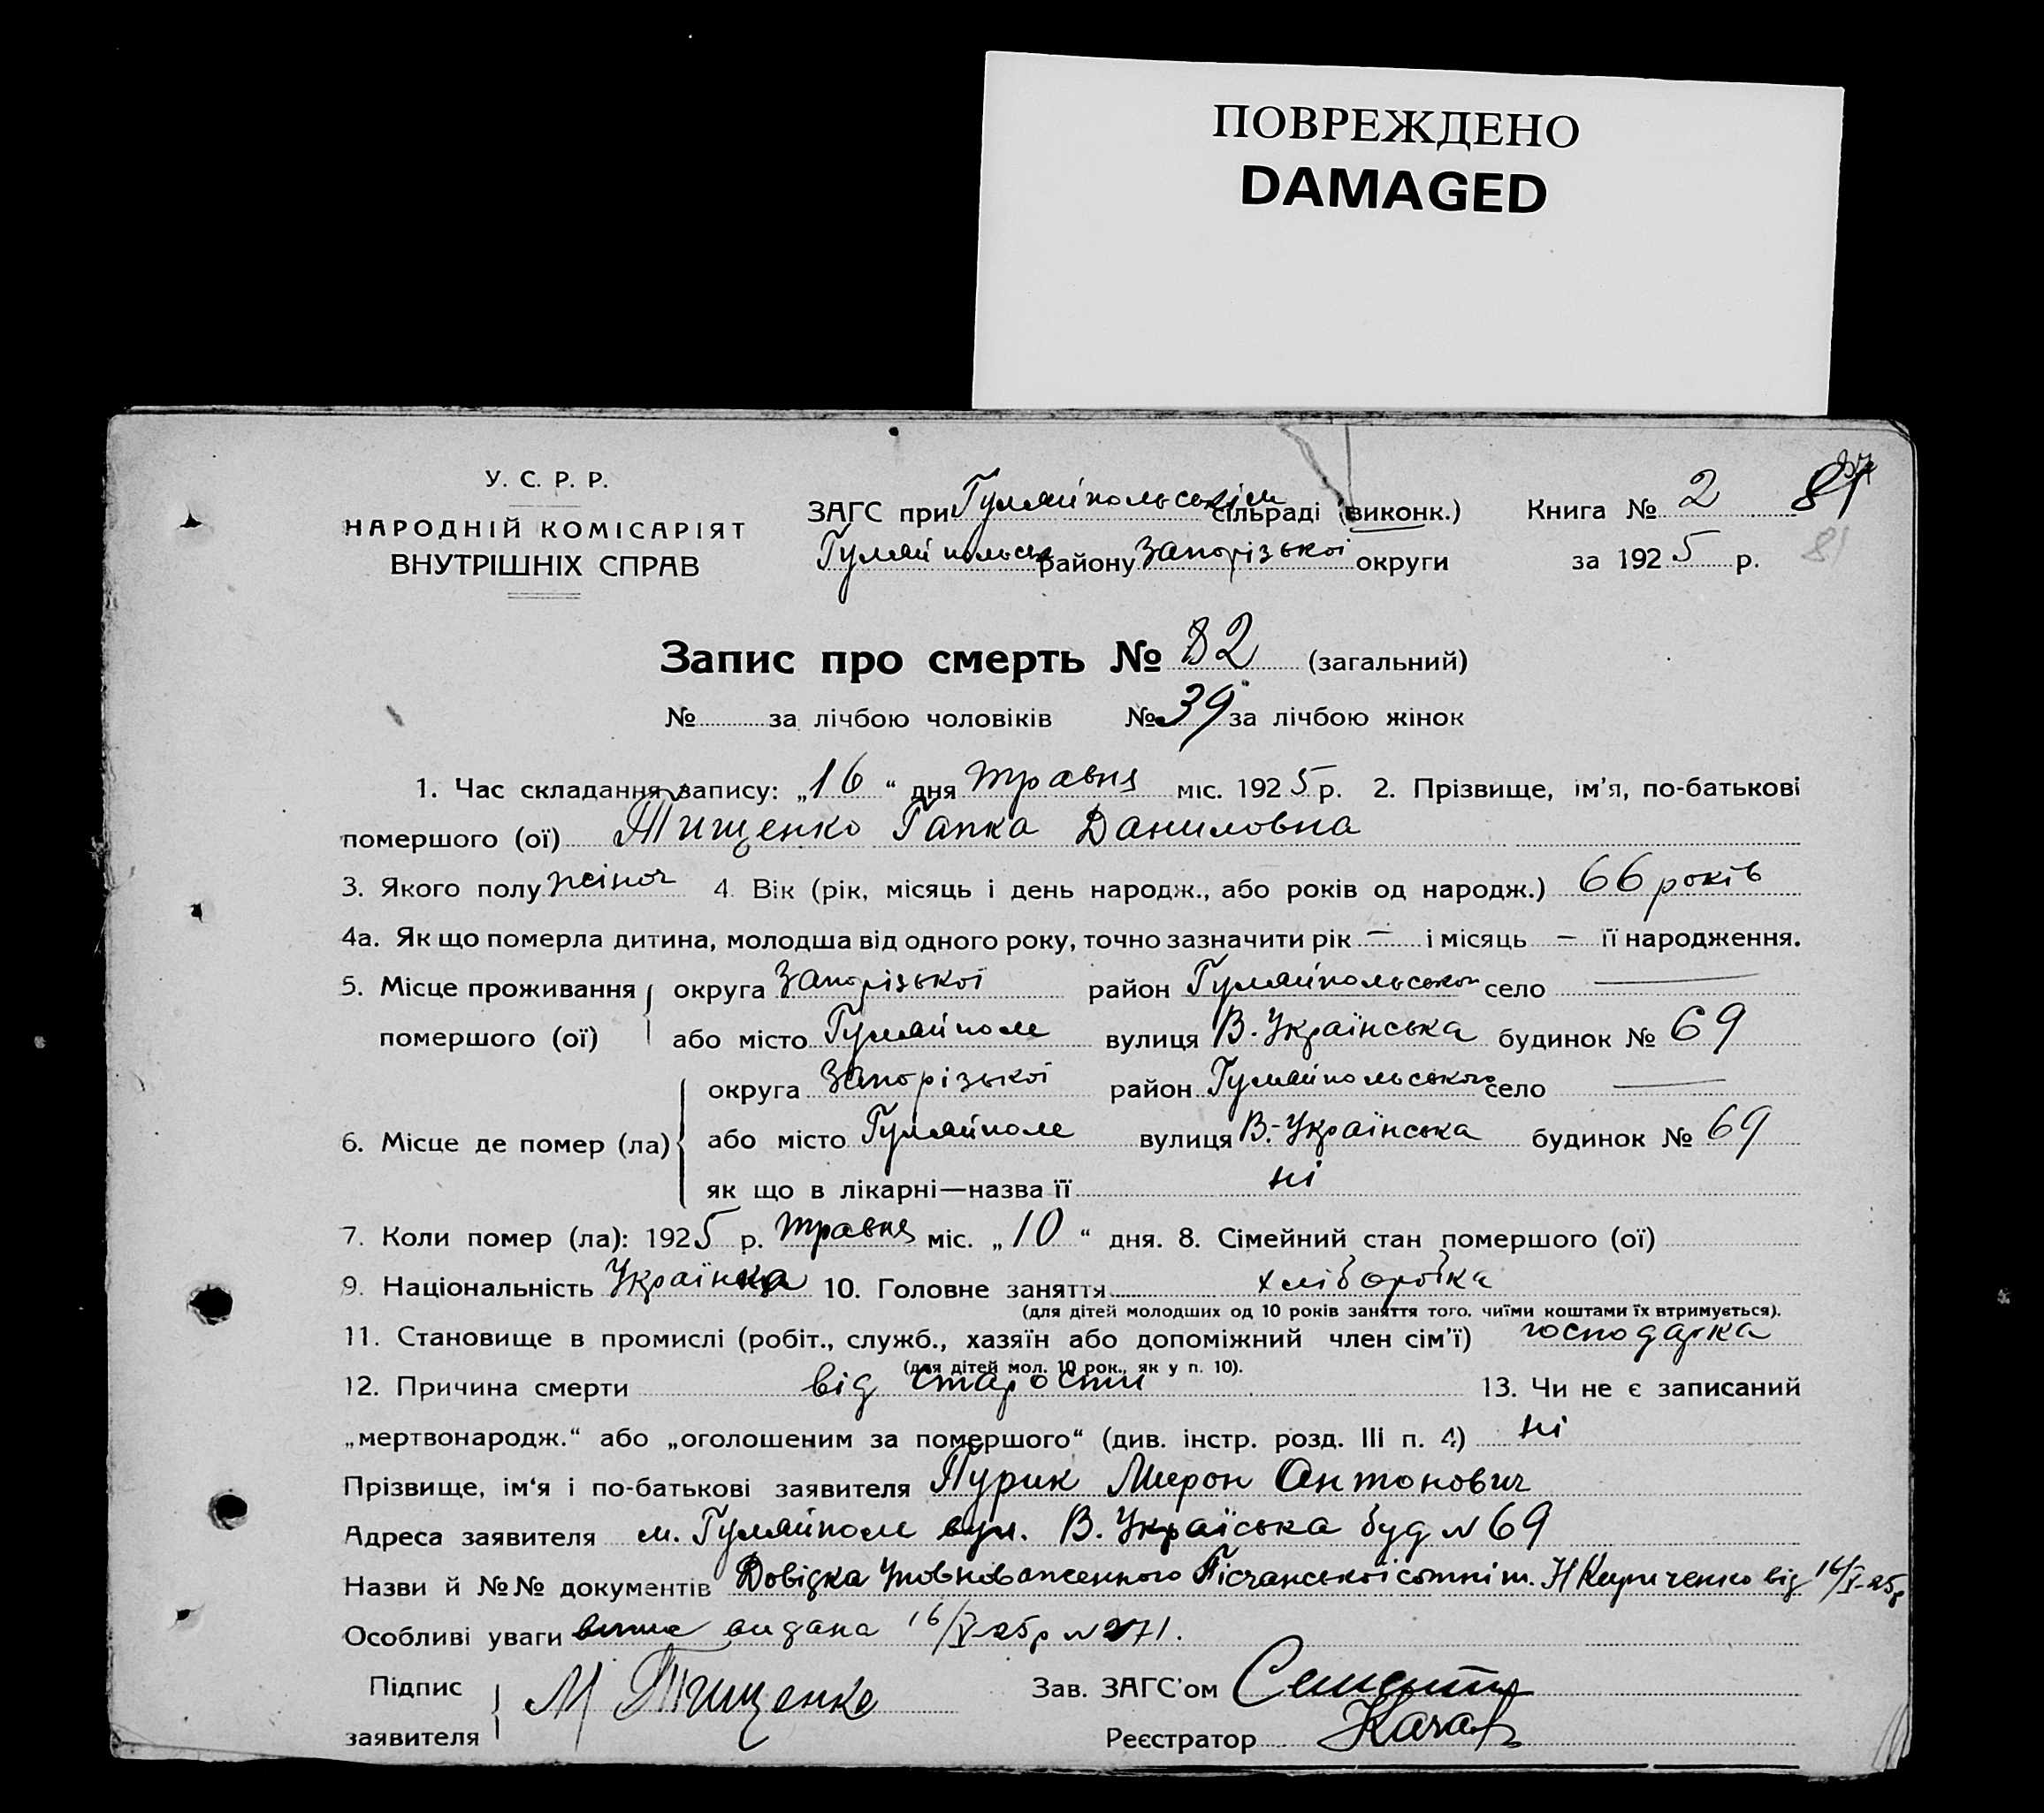 ПОВРЕЖДЕНО
DAMAGED
У. С. Р. Р.
НАРОДНІЙ КОМІСАРІЯТ
ВНУТРІШНІХ СПРАВ
ЗАГС при Гуляйпольськім сільраді (виконк.)
Гуляйпольськ району Запорізької округи
Книга № 2 81
за 1925 р. 81
Запис про смерть № 82 (загальний)
№ за лічбою чоловіків № 39 за лічбою жінок
1. Час складання запису: „16“ дня травня міс. 1925 р. 2. Прізвище, ім'я, по-батькові
помершого (ої) Тищенко Гапка Даниловна
3. Якого полу жіноч 4. Вік (рік, місяць і день народж., або років од народж.) 66 років
4а. Як що померла дитина, молодша від одного року, точно зазначити рік — і місяць — її народження.
5. Місце проживання округа Запорізької район Гуляйпольського село —
помершого (ої) або місто Гуляйполе вулиця В. Українська будинок № 69
округа Запорізької район Гуляйпольського село —
6. Місце де помер (ла) або місто Гуляйполе вулиця В.-Українська будинок № 69
як що в лікарні—назва її ні
7. Коли помер (ла): 1925 р. травня міс. „10“ дня. 8. Сімейний стан помершого (ої)
9. Національність Українка 10. Головне заняття хліборобка
(для дітей молодших од 10 років заняття того, чиїми коштами їх втримується).
11. Становище в промислі (робіт., служб., хазяїн або допоміжний член сім'ї) господарка
(для дітей мол. 10 рок., як у п. 10).
12. Причина смерти від старости 13. Чи не є записаний
„мертвонародж.“ або „оголошеним за помершого“ (див. інстр. розд. III п. 4) ні
Прізвище, ім'я і по-батькові заявителя Пурик Мирон Антонович
Адреса заявителя м. Гуляйполе вул. В. Украіська буд N 69
Назви й №№ документів Довідка Уповноваженного Пісчанської сотні т. Н Кириченко від 16/V-25р
Особливі уваги видана 16/V-25р N 271.
Підпис
заявителя М Тищенко
Зав. ЗАГС'ом
Реєстратор